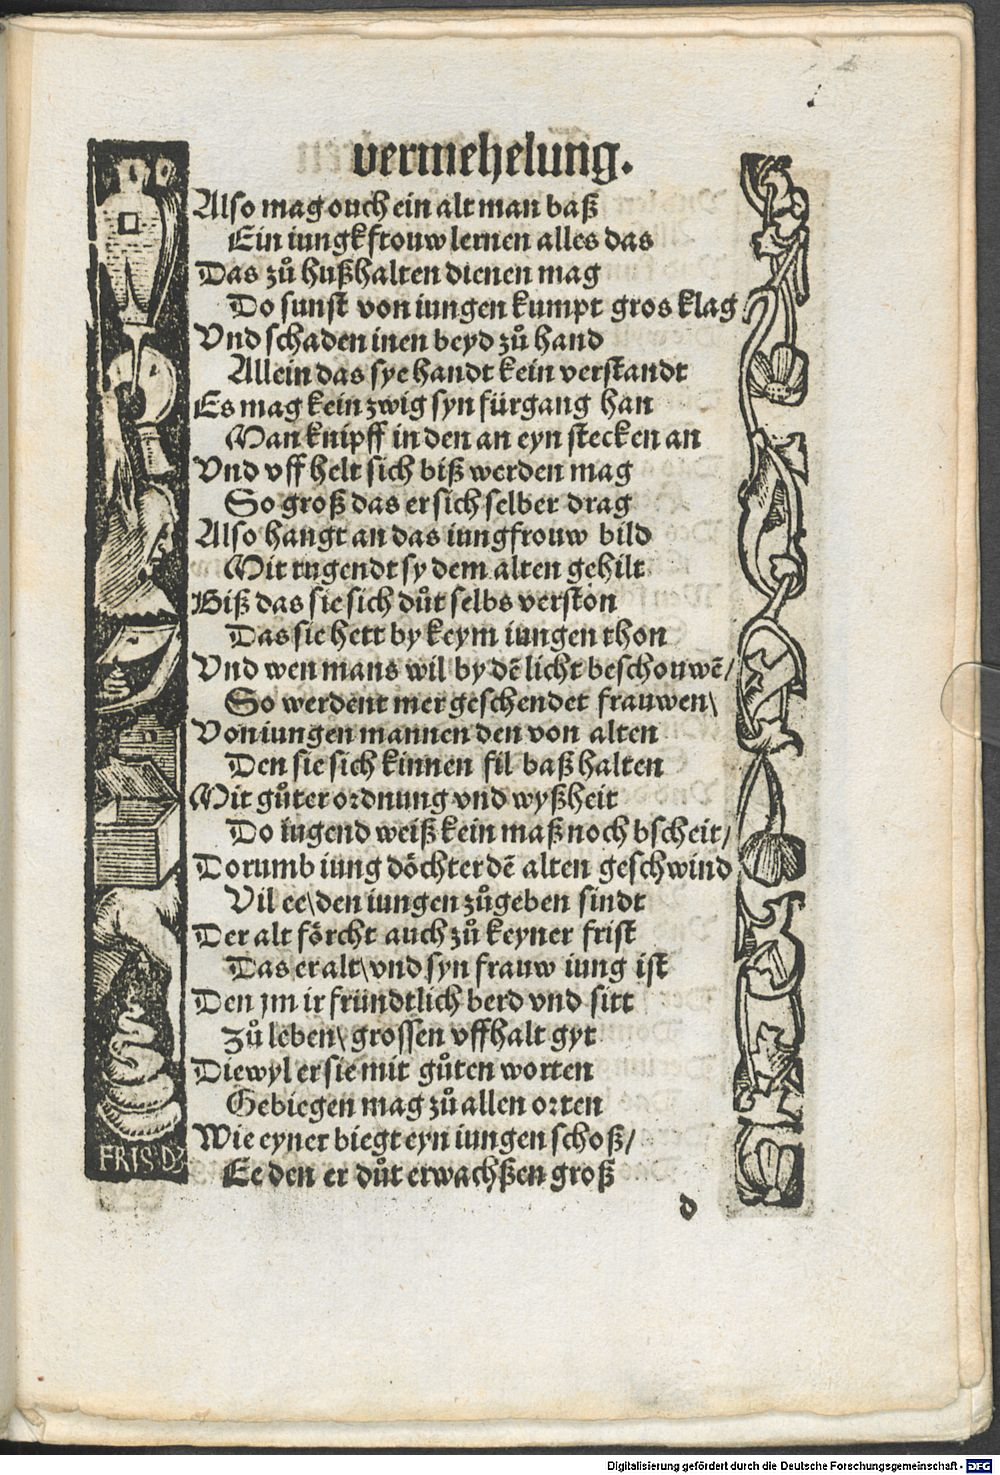 vermehelung.
Also mag ouch ein alt man baß
Ein iungkfrouw lernen alles das
Das zů hußhalten dienen mag
Do sunst von iungen kumpt gros klag
Vnd schaden inen beyd zů hand
Allein das sye handt kein verstandt
Es mag kein zwig syn fürgang han
Man knipff in den an eyn stecken an
Vnd vff helt sich biß werden mag
So groß das er sich selber drag
Also hangt an das iungfrouw bild
Mit tugendt sy dem alten gehilt
Biß das sie sich důt selbs verston
Das sie hett by keym iungen thon
Vnd wen mans wil by dē licht beschouwē/
So werdent mer geschendet frauwen\
Von iungen mannen den von alten
Den sie sich kinnen fil baß halten
Mit gůter ordnung vnd wyßheit
Do iugend weiß kein maß noch bscheit/
Dorumb iung döchter dē alten geschwind
Vil ee\ den iungen zůgeben sindt
Der alt förcht auch zů keyner frist
Das er alt\ vnd syn frauw iung ist
Den jm ir fründtlich berd vnd sitt
Zů leben\ grossen vffhalt gyt
Diewyl er sie mit gůten worten
Gebiegen mag zů allen orten
Wie eyner biegt eyn iungen schoß/
Ee den er důt erwachßen groß
d
FRIS·D
Digitalisierung gefördert durch die Deutsche Forschungsgemeinschaft - DFG